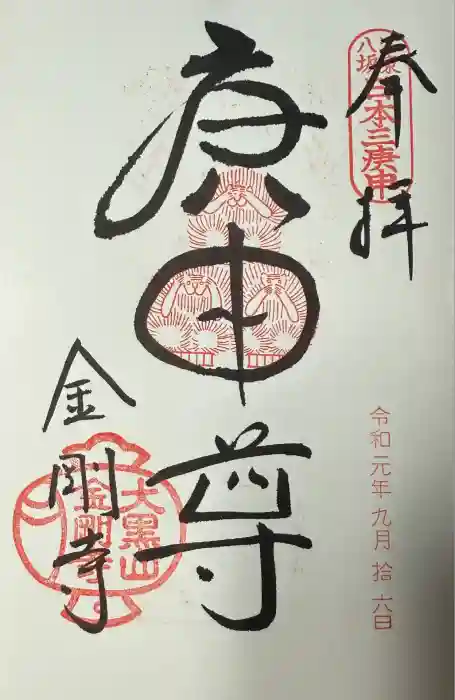 奉拝
京八坂
日本三庚申
令和元年九月拾六日
庚申尊
金剛寺
大黒山
金剛寺